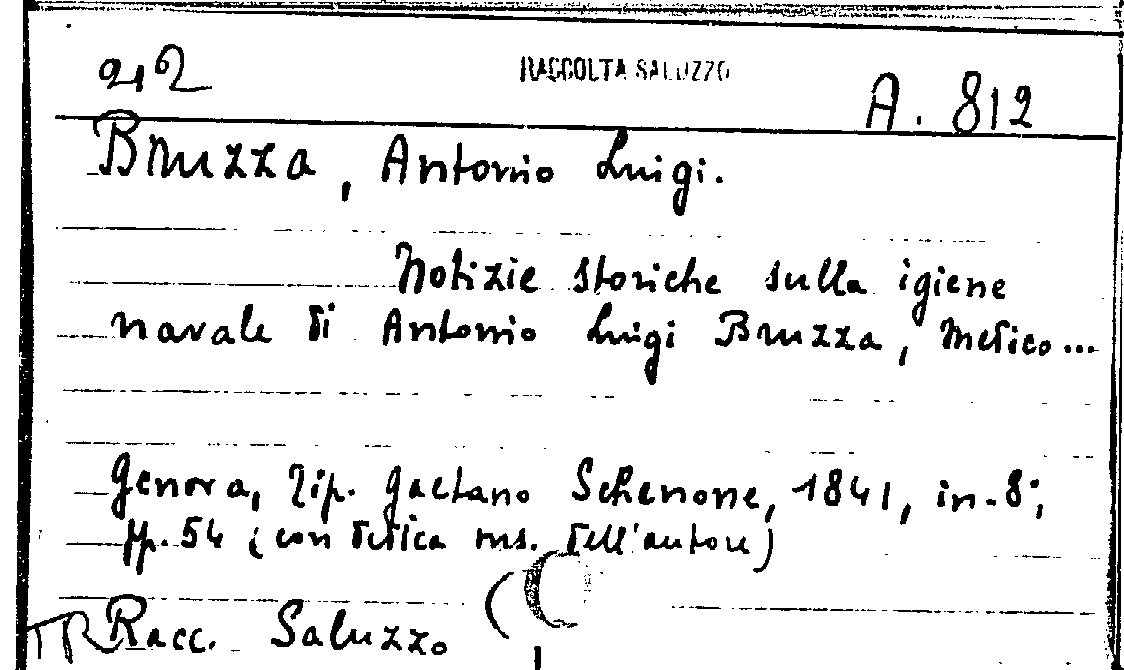 212
RACCOLTA SALUZZO
A. 812
Bruzza, Antonio Luigi.
Notizie storiche sulla igiene
navale di Antonio Luigi Bruzza, medico...
Genova, Tip. Gaetano Schenone, 1841, in-8°;
pp. 54 (con dedica ms. dell'autore)
TR Racc. Saluzzo